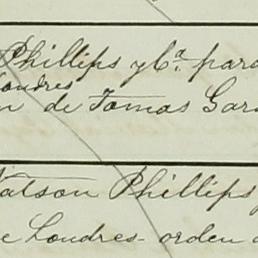 Phillips y Ca. para
Londres
n de Tomas Gar
Watson Phillips y
e Londres - orden d